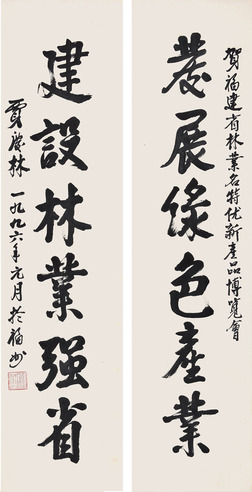 贺福建省林业名特优新產品博覽會
發展綠色產業
建設林業强省
贾慶林 一九九六年元月於福州